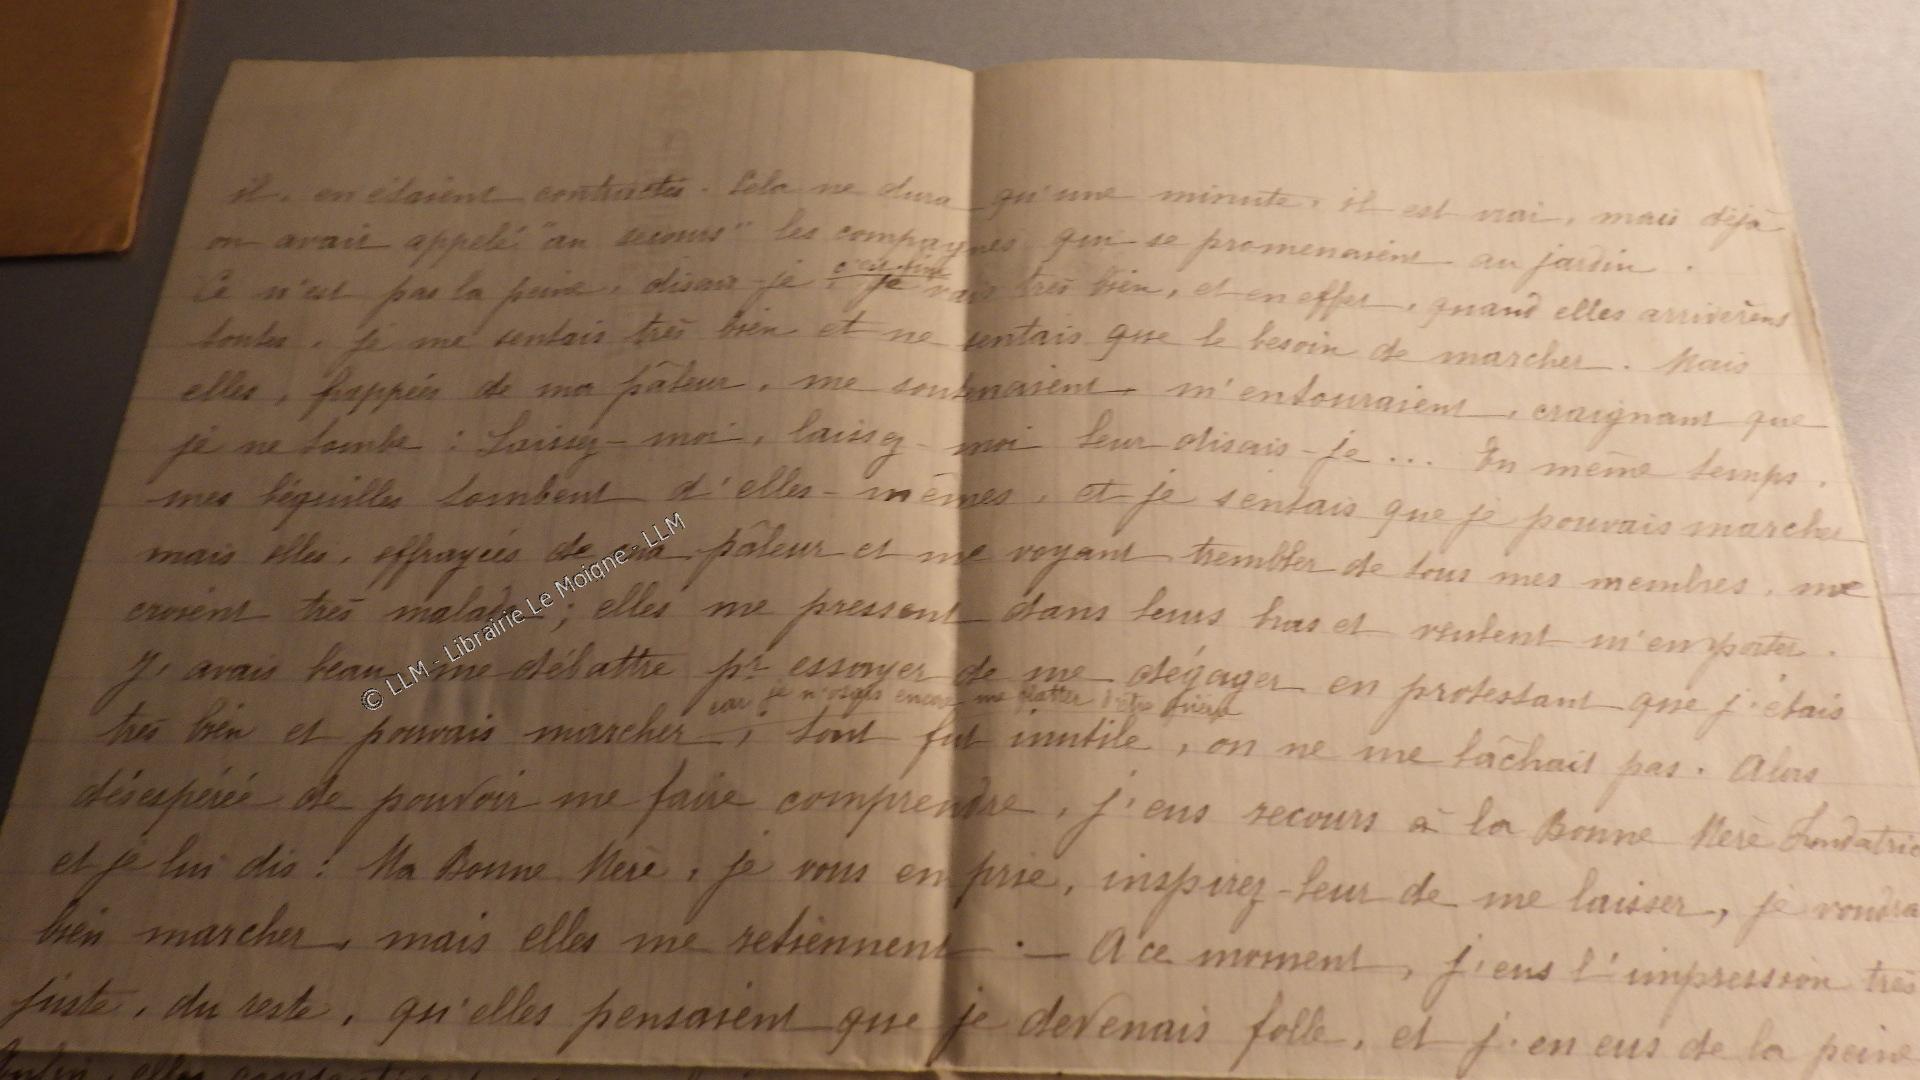 il, en étaient contractés. Cela ne dura qu'une minute, il est vrai, mais déjà
on avait appelé "au secours" les compagnes qui se promenaient au jardin.
Ce n'est pas la peine, disais-je, je vais très bien, et en effet, quand elles arrivèrent
toutes, je me sentais très bien et ne sentais que le besoin de marcher. Mais
elles, frappées de ma pâleur, me soutenaient, m'entouraient, craignant que
je ne tombe : Laissez-moi, laissez-moi leur disais-je... En même temps,
mes béquilles tombent d'elles-mêmes, et je sentais que je pouvais marcher
mais elles, effrayées de ma pâleur et me voyant trembler de tous mes membres, me
croient très malade ; elles me pressent dans leurs bras et veulent m'emporter.
J'avais beau me débattre pr essayer de me dégager en protestant que j'étais
car je n'osais encore me flatter d'être guérie
très bien et pouvais marcher, tout fut inutile, on ne me lâchait pas. Alors
désespérée de pouvoir me faire comprendre, j'eus recours à la Bonne Mère Fondatric
et je lui dis : Ma Bonne Mère, je vous en prie, inspirez-leur de me laisser, je voudra
bien marcher, mais elles me retiennent. — A ce moment, j'eus l'impression très
juste, du reste, qu'elles pensaient que je devenais folle, et j'en eus de la peine
elles
© LLM - Librairie Le Moigne - LLM